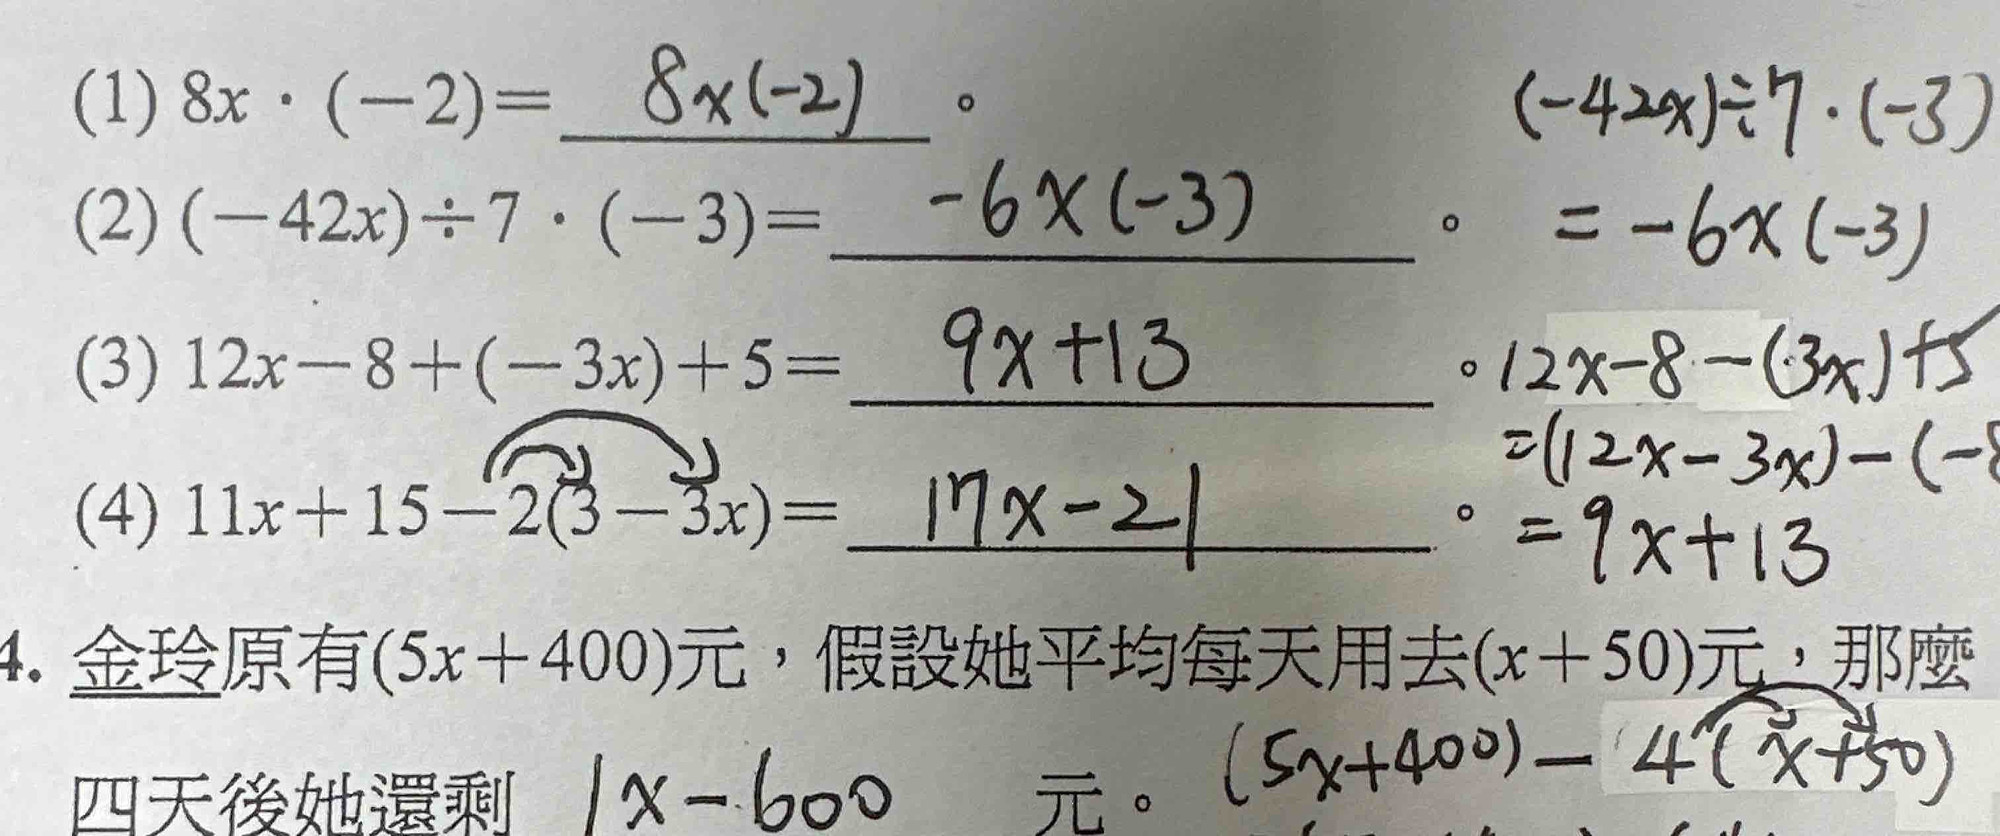 (1) 8x·(−2)= 8x(-2) 。
(-42x)÷7·(-3)
(2) (−42x)÷7·(−3)= -6x(-3) 。
= -6x(-3)
(3) 12x−8+(−3x)+5= 9x+13 。
12x-8-(-3x)+5
=(12x-3x)-(-8
= 9x+13
(4) 11x+15−2(3−3x)= 17x-21 。
4. 金玲原有(5x+400)元，假設她平均每天用去(x+50)元，那麼
(5x+400)-4(x+50)
四天後她還剩 1x-600 元。